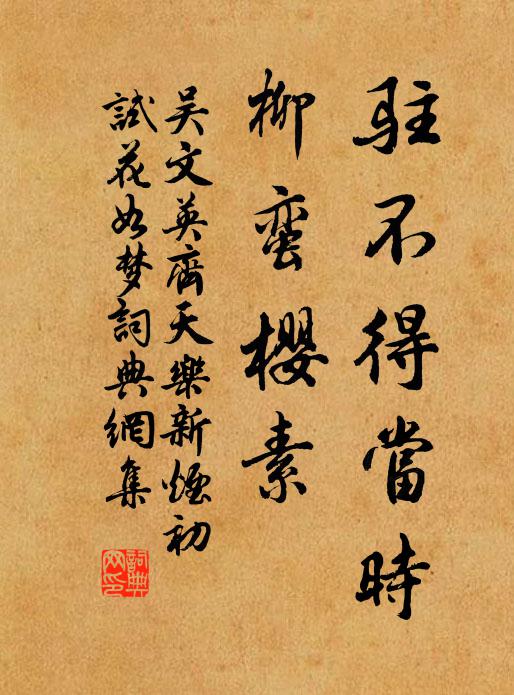 駐不得當時
柳蛮櫻素
吴文英齊天樂新煙初
試花如梦詞典網集
詞典
网印